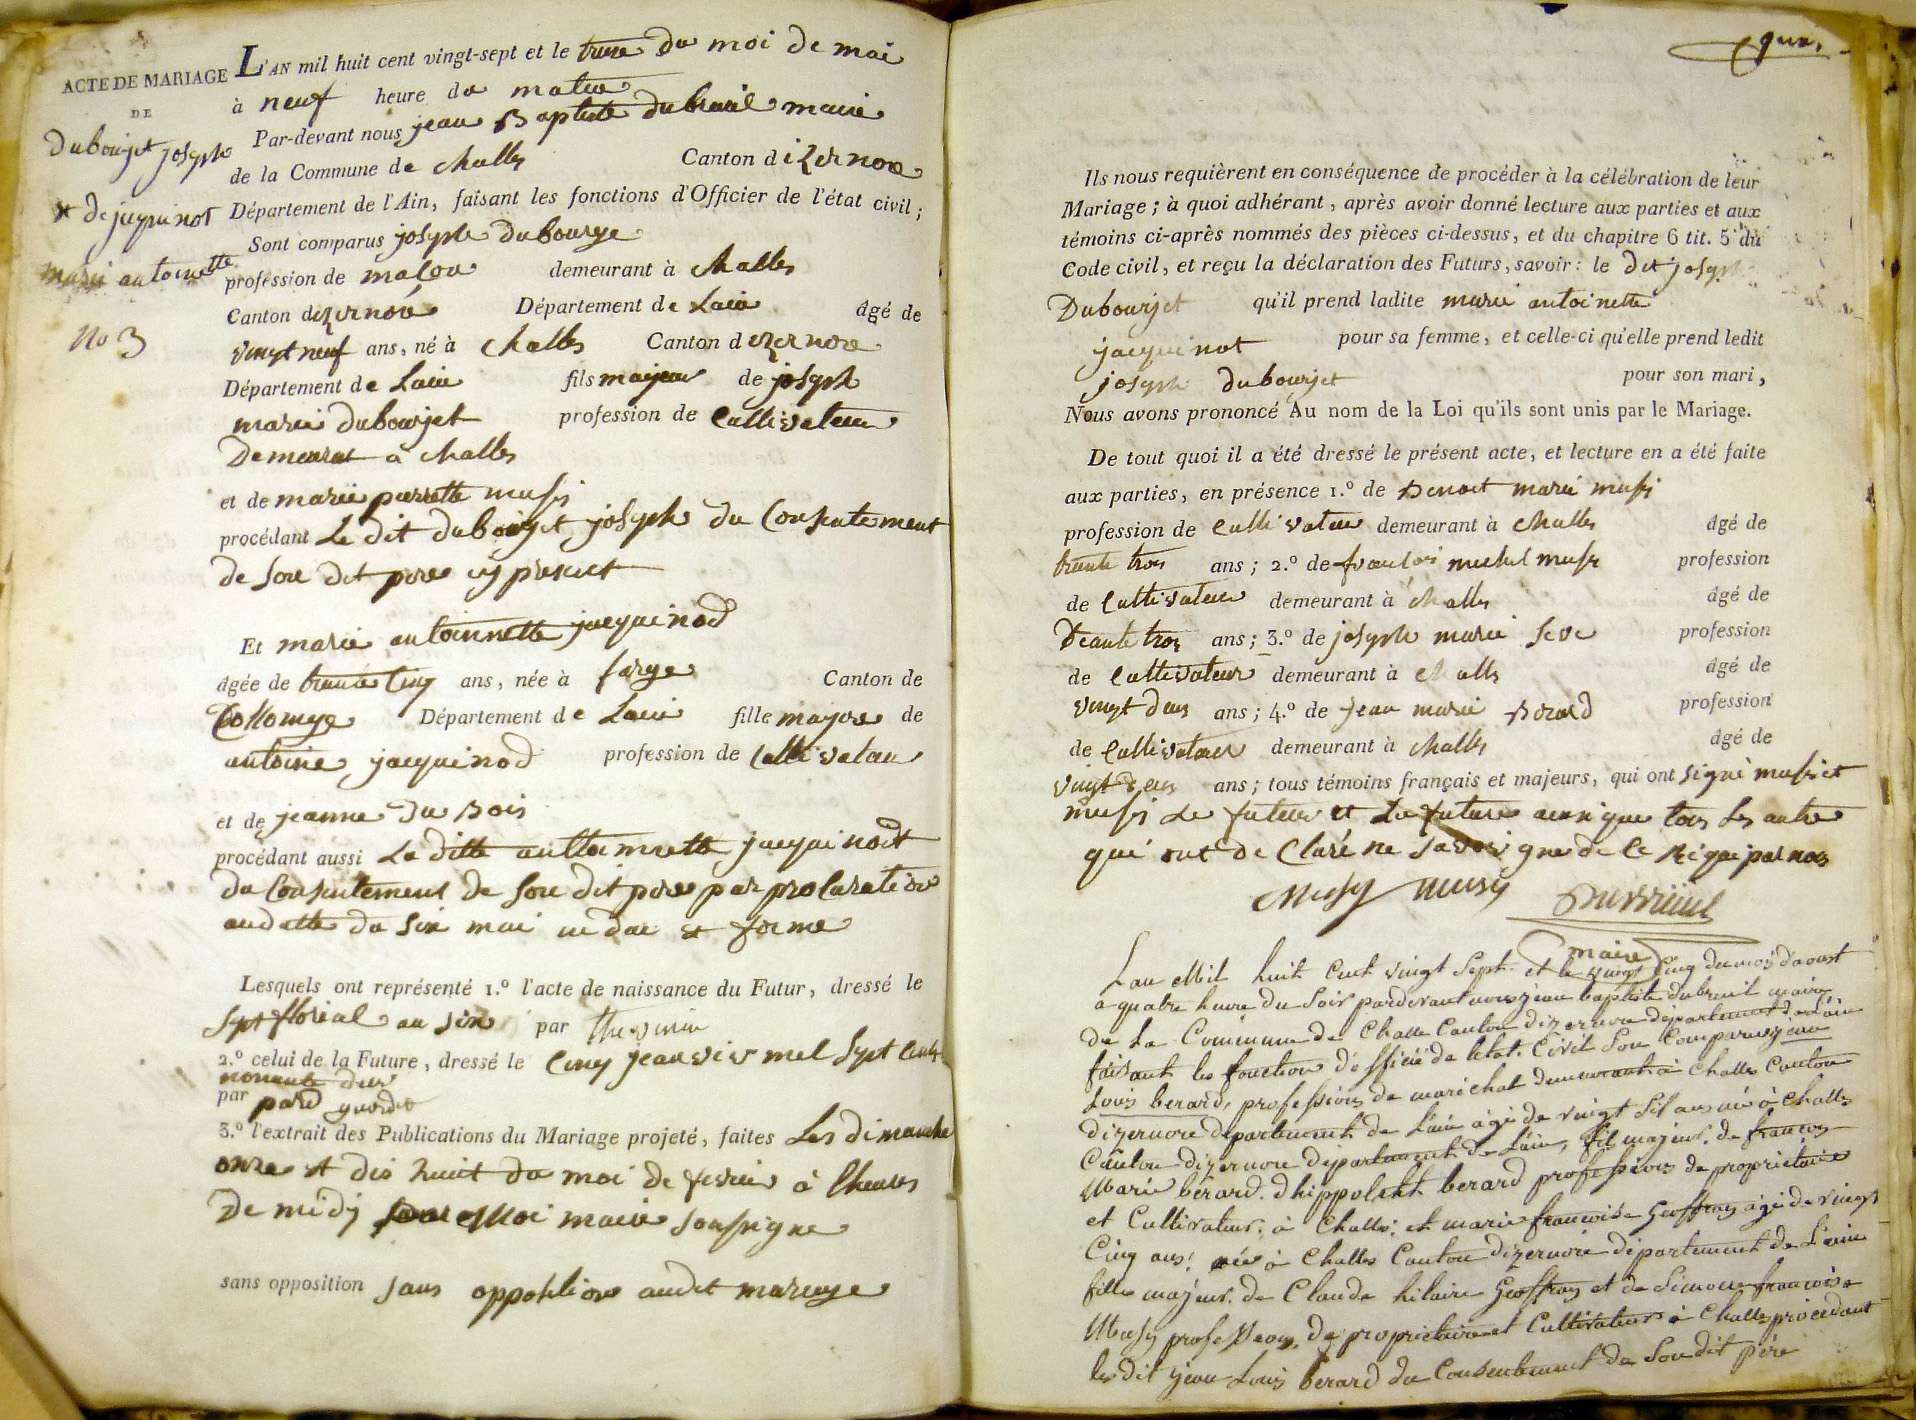 ACTE DE MARIAGE
DE
Dubourjet joseph
* de jaquinot
marie antoinette
No 3
L'AN mil huit cent vingt-sept et le treize du moi de mai
à neuf heure du matin
Par-devant nous jean Baptiste dubreuil maire
de la Commune de challes Canton d izernore
Département de l'Ain, faisant les fonctions d'Officier de l'état civil ;
Sont comparus joseph dubourge
profession de maçon demeurant à challes
Canton dizernore Département de Lain âgé de
vingt neuf ans, né à challes Canton d izernore
Département de Lain fils majeur de joseph
marie dubourjet profession de Cultivateur
Demeurat à challes
et de marie pierrette mussy
procédant Le dit dubourjet joseph du Consentement
de son dit pere cy present
Et marie antoinnette jacquinod
âgée de trante Cinq ans, née à farge Canton de
Collonge Département de Lain fille majore de
antoine jacquinod profession de Cultivateur
et de jeanne du Bois
procédant aussi La ditte anttoinnette jacquinodt
du Consentement de son dit pere par procuration
en datte du six mai en due et forme
Lesquels ont représenté 1.º l'acte de naissance du Futur, dressé le
sept floréal an six par
2.º celui de la Future, dressé le Cinq jeanvier mil sept Cent
nonante deux
par
3.º l'extrait des Publications du Mariage projeté, faites Les dimanche
onze et dix huit du moi de fevrier à lheures
De midy moi maire soussigne
sans opposition sans opposition audit mariage
Ils nous requièrent en conséquence de procéder à la célébration de leur
Mariage ; à quoi adhérant, après avoir donné lecture aux parties et aux
témoins ci-après nommés des pièces ci-dessus, et du chapitre 6 tit. 5 du
Code civil, et reçu la déclaration des Futurs, savoir : le dit joseph
Dubourjet qu'il prend ladite marie antoinette
jacquinot pour sa femme, et celle-ci qu'elle prend ledit
joseph dubourjet pour son mari,
Nous avons prononcé Au nom de la Loi qu'ils sont unis par le Mariage.
De tout quoi il a été dressé le présent acte, et lecture en a été faite
aux parties, en présence 1.º de Benoit marie mussy
profession de Cultivateur demeurant à challes âgé de
trante trois ans ; 2.º de françois michel mussy profession
de Cultivateur demeurant à challes âgé de
trante trois ans ; 3.º de joseph marie seve profession
de Cultivateur demeurant à challes âgé de
vingt deux ans ; 4.º de jean marie Berard profession
de Cultivateur demeurant à challes âgé de
vingt deux ans ; tous témoins français et majeurs, qui ont signé mussy et
mussy Le futeur et La future ainsi que tous les autre
qui ont de Claré ne savoir de Ce requi par nous
Musy musy Dubreuil
maire
Lan Mil huit Cent vingt Sept et le vingt Cinq du mois daoust
a quatre heure du Soir pardevant nous jean baptiste dubreuil maire
de La Commune de Challe Canton dizernore departement de Lain
faisant les fonction dofficié de letat Civil Son Comparu jean
Louis berard, profession de marichal demeurant à Challes Canton
dizernore departement de Lain agé de vingt ans né à Challes
Canton dizernore departement de Lain, fils majeur de francois
Marie berard dhippolitte berard profession de propriétaire
et Cultivateur à Challe et marie francoise Geoffray agé de vingt
Cinq ans née à Challes Canton dizernore departement de Lain
fille majeur de Claude hilaire Geoffray et de Simone francoise
Musy profession de propriétaire et Cultivateur à Challe procedant
le dit jean Louis berard du Consentement de Son dit père